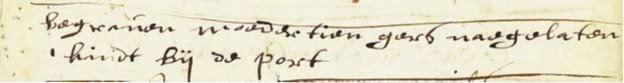 begraven moedertien gerb naegelaten
kindt bij de port